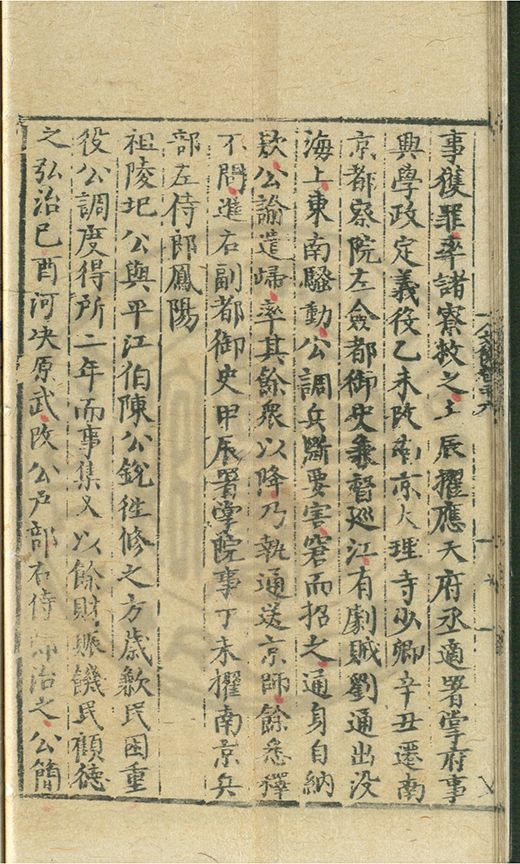 事獲罪率諸寮救之壬辰擢應天府丞適署掌府事
興學政定義役乙未改南京大理寺少卿辛丑遷南
京都察院左僉都御史兼督巡江有劇賊劉通出沒
海上東南騷動公調兵斷要害窘而招之通身自納
欵公諭遣歸率其餘眾以降乃執通送京師餘悉釋
不問進右副都御史甲辰署掌院事丁未擢南京兵
部左侍郎鳳陽
祖陵圮公與平江伯陳公銳徃修之方歲歉民困重
役公調度得所二年而事集又以餘財賑饑民頼德
之弘治己酉河决原武改公戸部右侍郎治之公簡